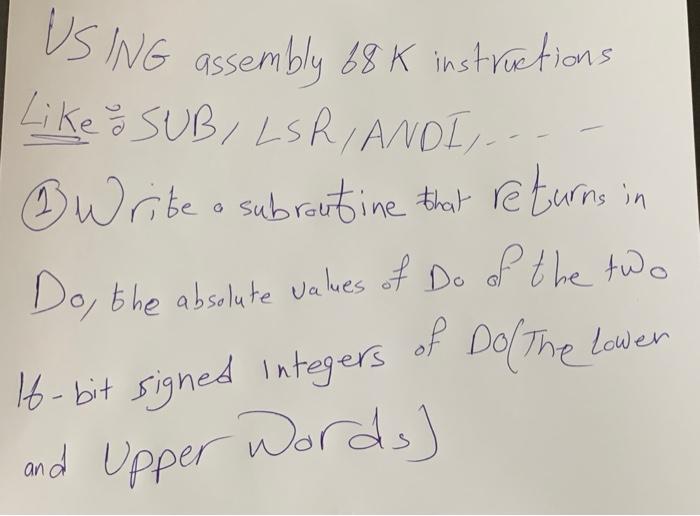 USING assembly 68K instructions
Like: SUB, LSR, ANDI, ....
① Write a subroutine that returns in
Do, the absolute values of Do of the two
16-bit signed integers of DO (The Lower
and Upper Words)